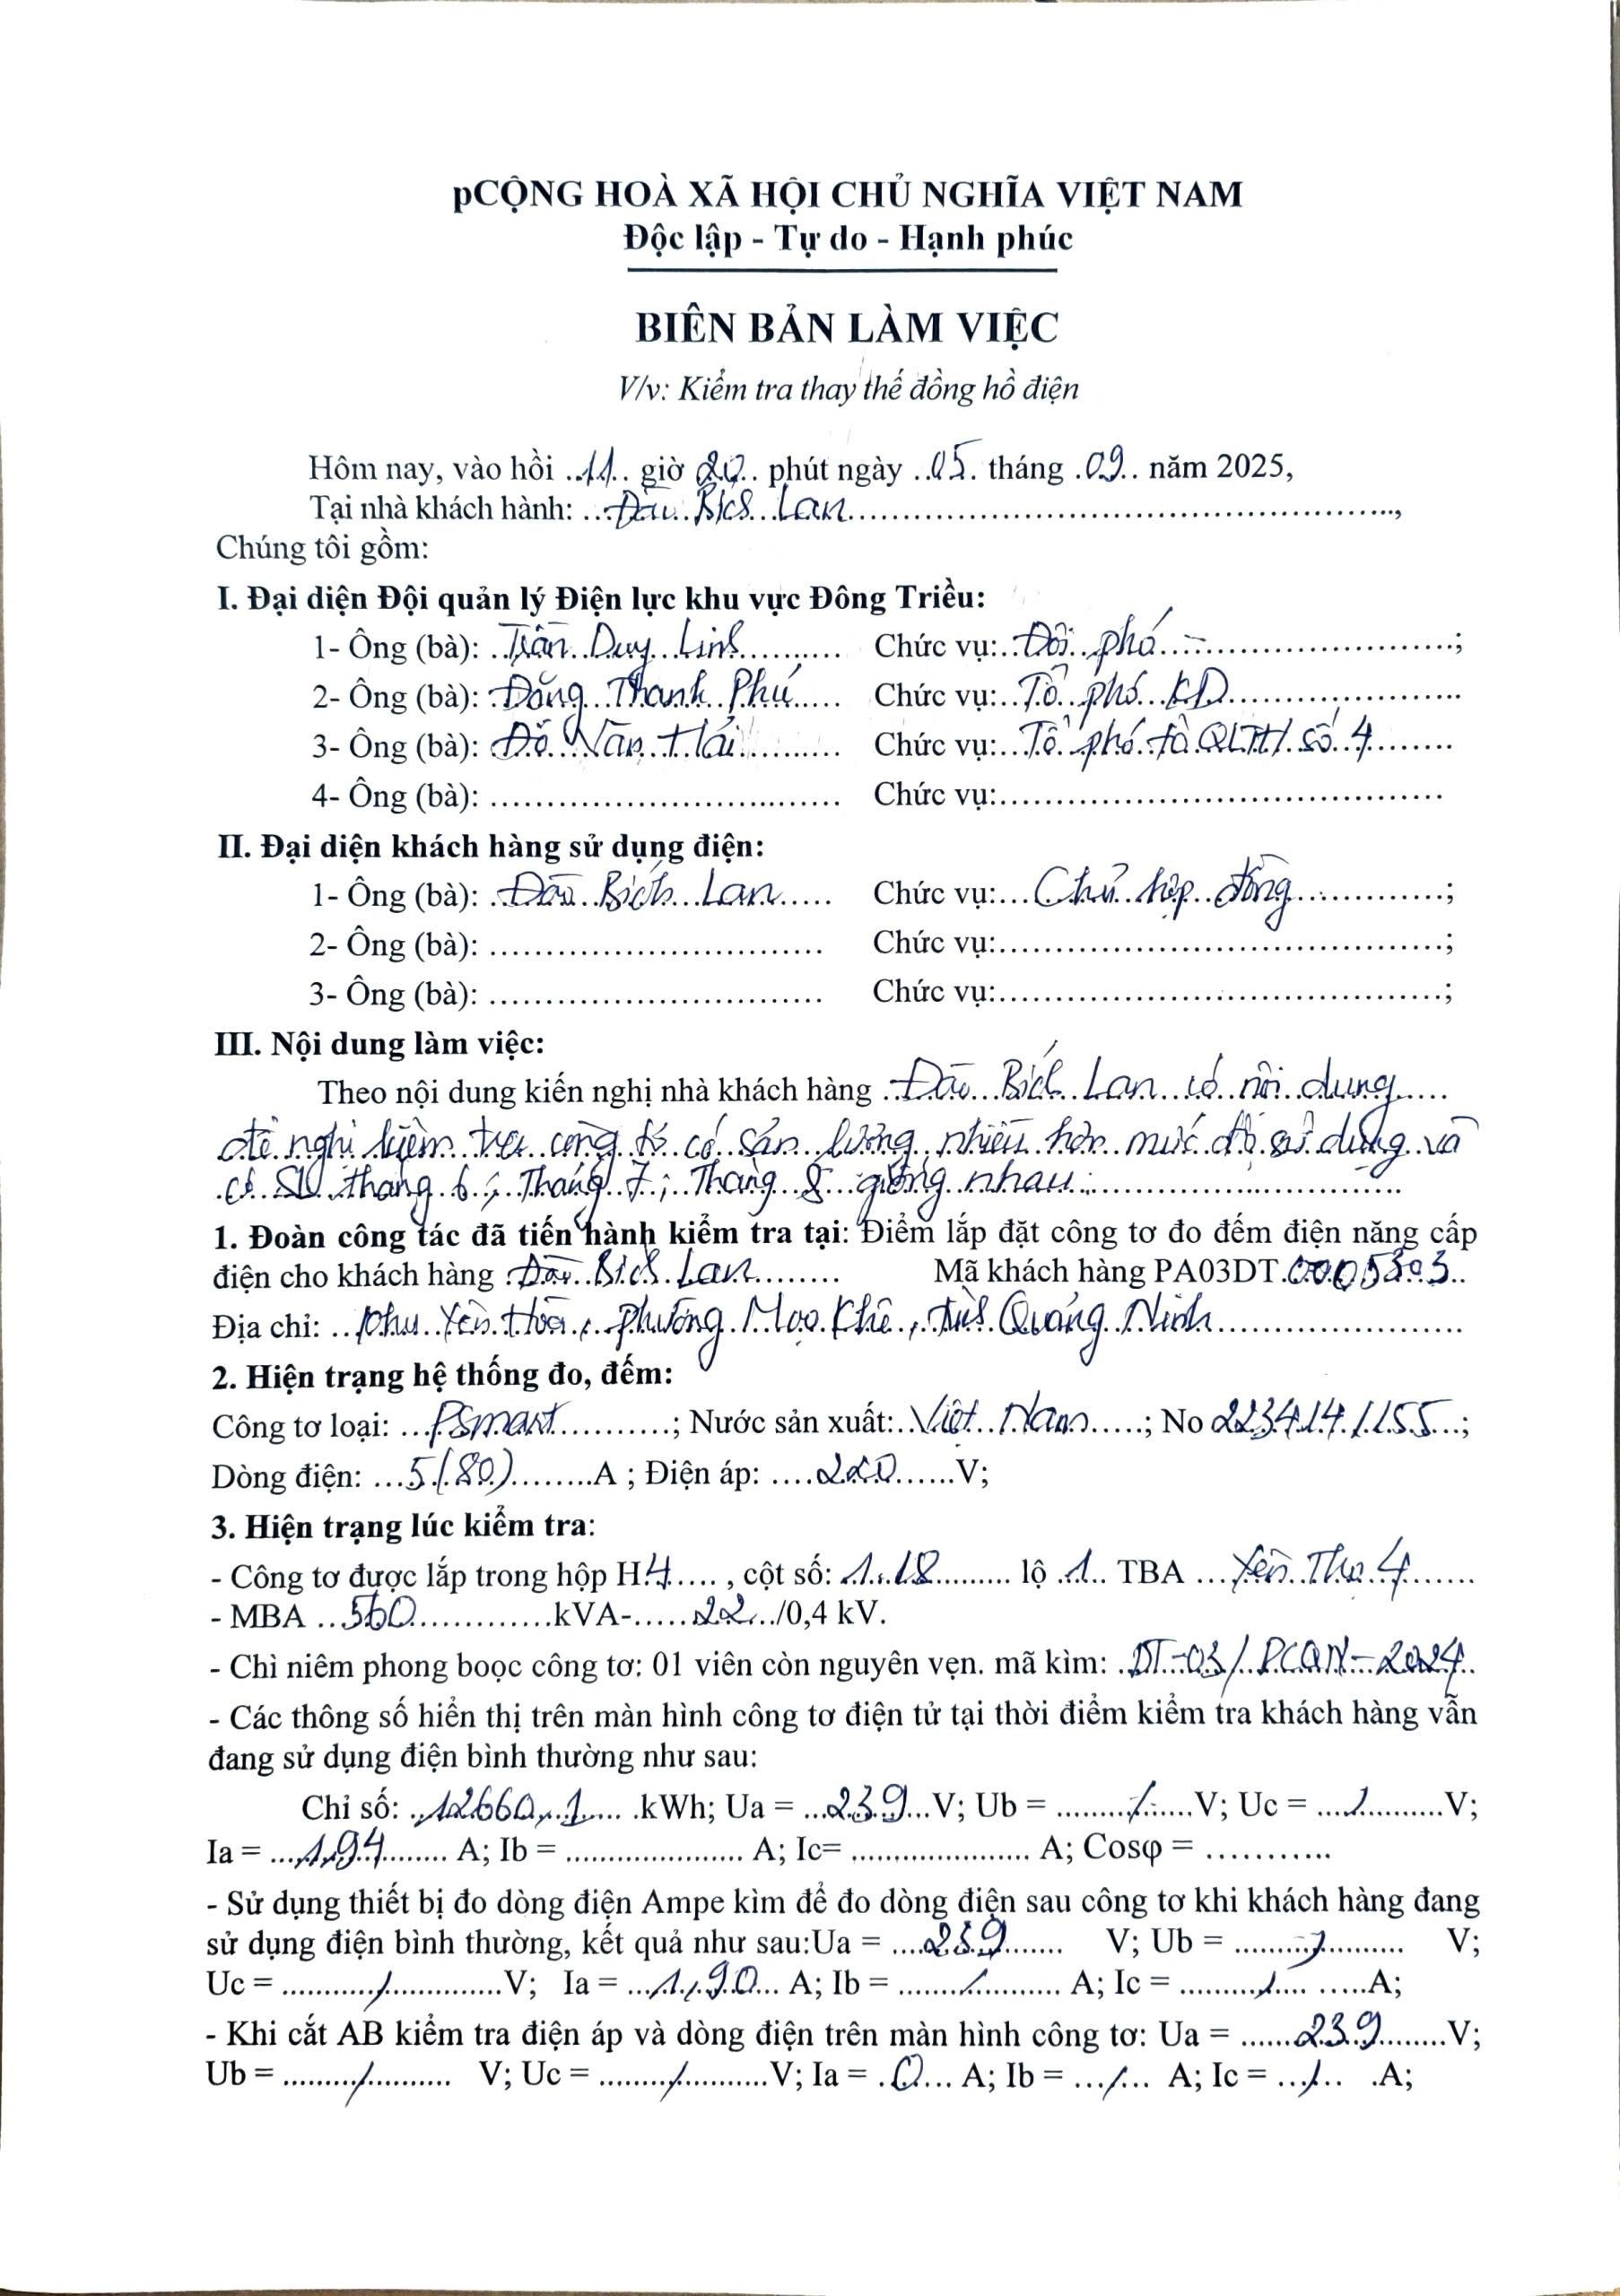 pCỘNG HOÀ XÃ HỘI CHỦ NGHĨA VIỆT NAM
Độc lập - Tự do - Hạnh phúc
BIÊN BẢN LÀM VIỆC
V/v: Kiểm tra thay thế đồng hồ điện
Hôm nay, vào hồi 11 giờ 20 phút ngày 05 tháng 09 năm 2025,
Tại nhà khách hành: Đào Bích Lan,
Chúng tôi gồm:
I. Đại diện Đội quản lý Điện lực khu vực Đông Triều:
1- Ông (bà): Trần Duy Linh Chức vụ: Đội phó ;
2- Ông (bà): Đặng Thanh Phú Chức vụ: Tổ phó KD
3- Ông (bà): Đỗ Văn Hải Chức vụ: Tổ phó tổ QLTH số 4
4- Ông (bà): Chức vụ:
II. Đại diện khách hàng sử dụng điện:
1- Ông (bà): Đào Bích Lan Chức vụ: Chủ hợp đồng ;
2- Ông (bà): Chức vụ: ;
3- Ông (bà): Chức vụ: ;
III. Nội dung làm việc:
Theo nội dung kiến nghị nhà khách hàng Đào Bích Lan có nội dung
đề nghị kiểm tra công tơ có sản lượng nhiều hơn mức độ sử dụng và
có SL tháng 6 ; Tháng 7 ; Tháng 8 giống nhau
1. Đoàn công tác đã tiến hành kiểm tra tại: Điểm lắp đặt công tơ đo đếm điện năng cấp
điện cho khách hàng Đào Bích Lan Mã khách hàng PA03DT
Địa chỉ: khu Yên Hòa, phường Mạo Khê, tỉnh Quảng Ninh
2. Hiện trạng hệ thống đo, đếm:
Công tơ loại: PSmart ; Nước sản xuất: Việt Nam ; No 2234141155 ;
Dòng điện: 5(80) A ; Điện áp: 220 V;
3. Hiện trạng lúc kiểm tra:
- Công tơ được lắp trong hộp H4 , cột số: 1.18 lộ 1 TBA Yên Thọ 4
- MBA 560 kVA- 22 /0,4 kV.
- Chì niêm phong boọc công tơ: 01 viên còn nguyên vẹn. mã kìm: DT-03/PCQN-2024
- Các thông số hiển thị trên màn hình công tơ điện tử tại thời điểm kiểm tra khách hàng vẫn
đang sử dụng điện bình thường như sau:
Chỉ số: 12660,1 kWh; Ua = 239 V; Ub = / V; Uc = / V;
Ia = 1,94 A; Ib = A; Ic= A; Cosφ =
- Sử dụng thiết bị đo dòng điện Ampe kìm để đo dòng điện sau công tơ khi khách hàng đang
sử dụng điện bình thường, kết quả như sau:Ua = 239 V; Ub = / V;
Uc = / V; Ia = 1,90 A; Ib = / A; Ic = / A;
- Khi cắt AB kiểm tra điện áp và dòng điện trên màn hình công tơ: Ua = 239 V;
Ub = / V; Uc = / V; Ia = 0 A; Ib = / A; Ic = / A;